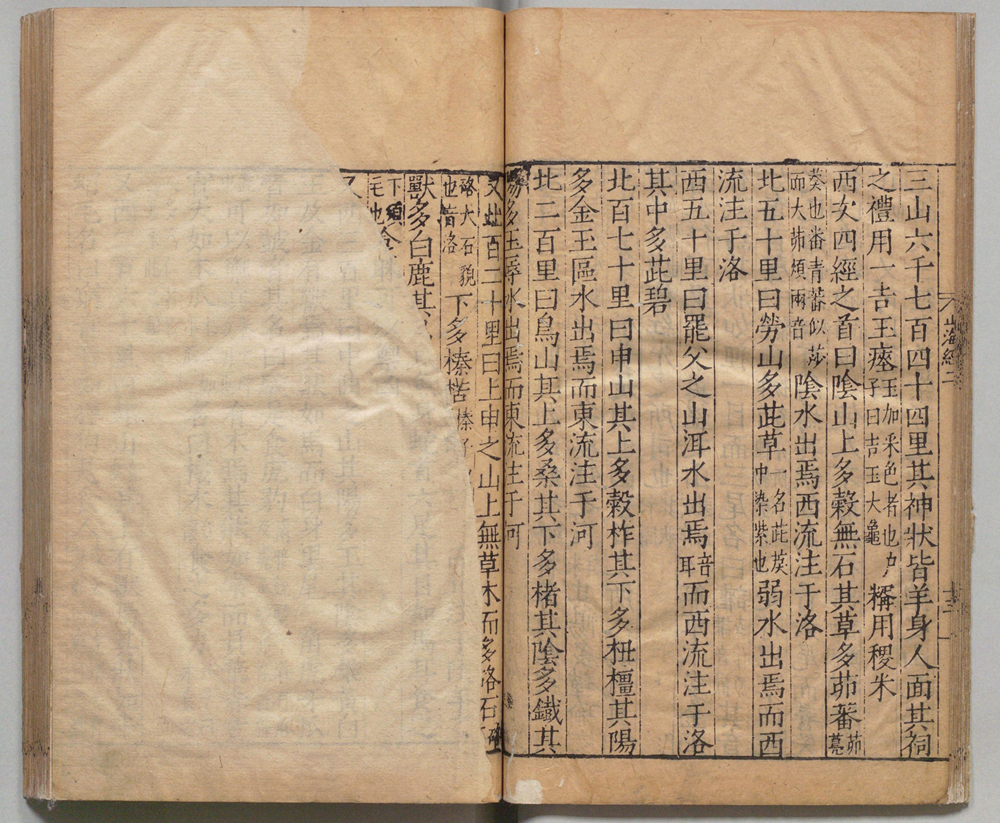 三山六千七百四十四里其神狀皆羊身人面其祠
之禮用一吉玉瘞玉加采色者也尸子曰吉玉大龜糈用稷米
西次四經之首曰陰山上多榖無石其草多茆蕃茆蔦
葵也蕃青蕃似莎而大茆煩兩音陰水出焉西流注于洛
北五十里曰勞山多茈草一名茈䓞中染紫也弱水出焉而西
流注于洛
西五十里曰罷父之山洱水出焉音耳而西流注于洛
其中多茈碧
北百七十里曰申山其上多榖柞其下多杻橿其陽
多金玉區水出焉而東流注于河
北二百里曰鳥山其上多桑其下多楮其陰多鐵其
陽多玉辱水出焉而東流注于河
又北百二十里曰上申之山上無草木而多硌石硌
硌大石貌也音洛下多榛楛榛子
獸多白鹿其
下須
毛也
又
山海經二